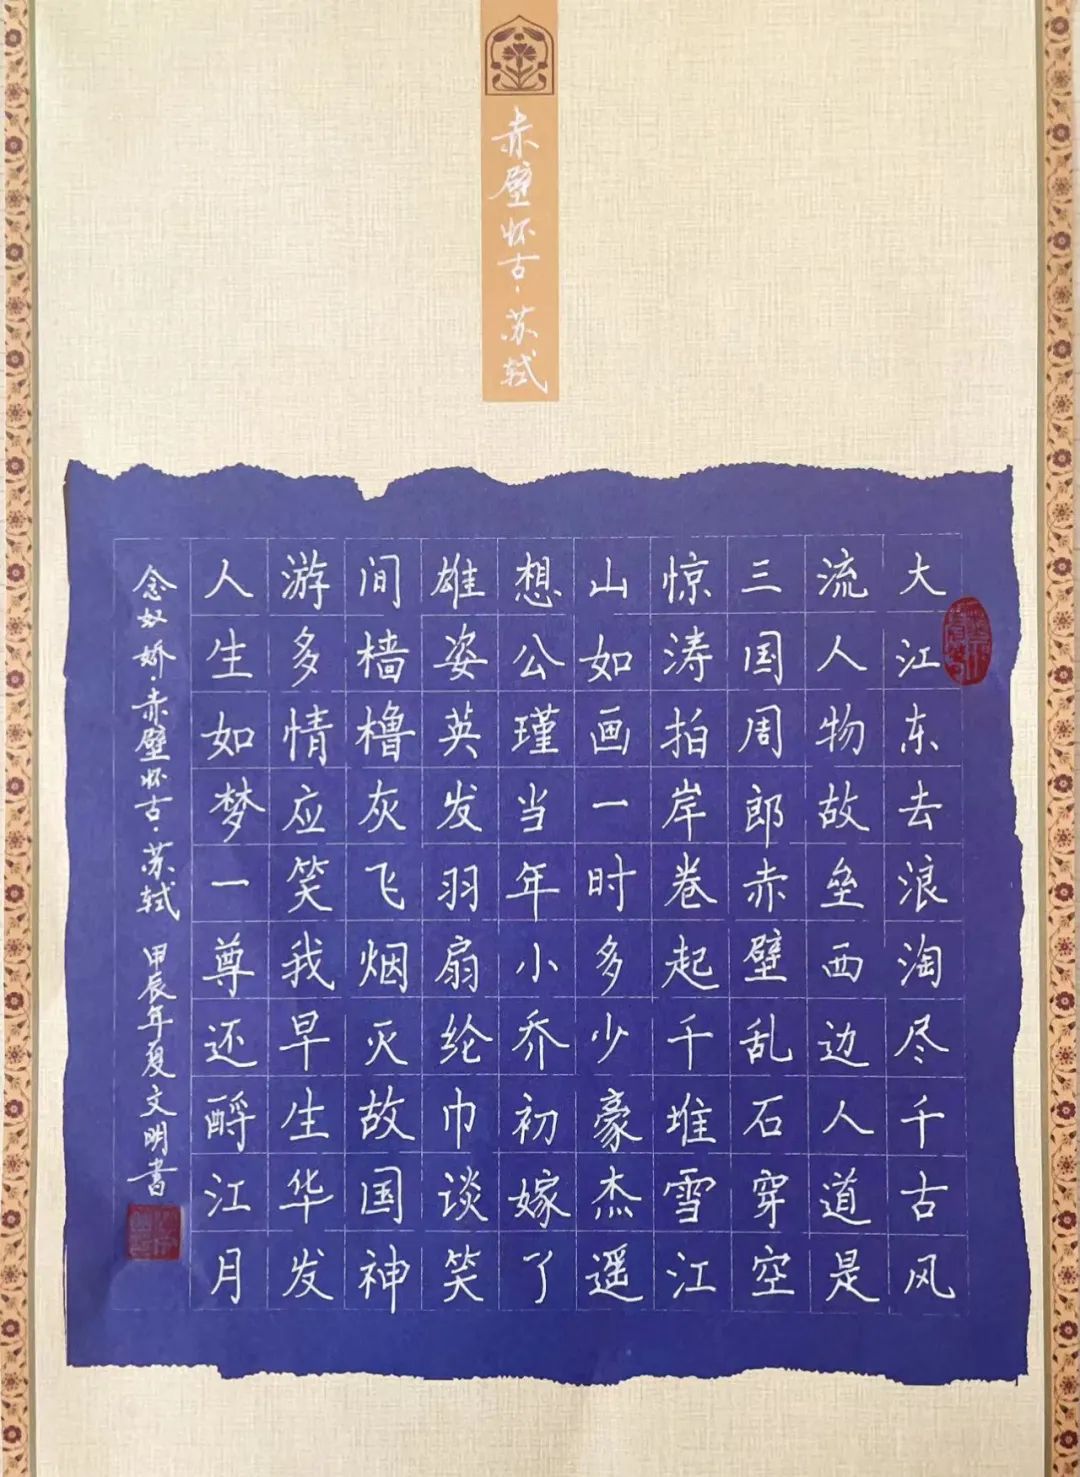 赤壁怀古·苏轼
大江东去浪淘尽千古风
流人物故垒西边人道是
三国周郎赤壁乱石穿空
惊涛拍岸卷起千堆雪江
山如画一时多少豪杰遥
想公瑾当年小乔初嫁了
雄姿英发羽扇纶巾谈笑
间樯橹灰飞烟灭故国神
游多情应笑我早生华发
人生如梦一尊还酹江月
念奴娇·赤壁怀古·苏轼 甲辰年夏文明书